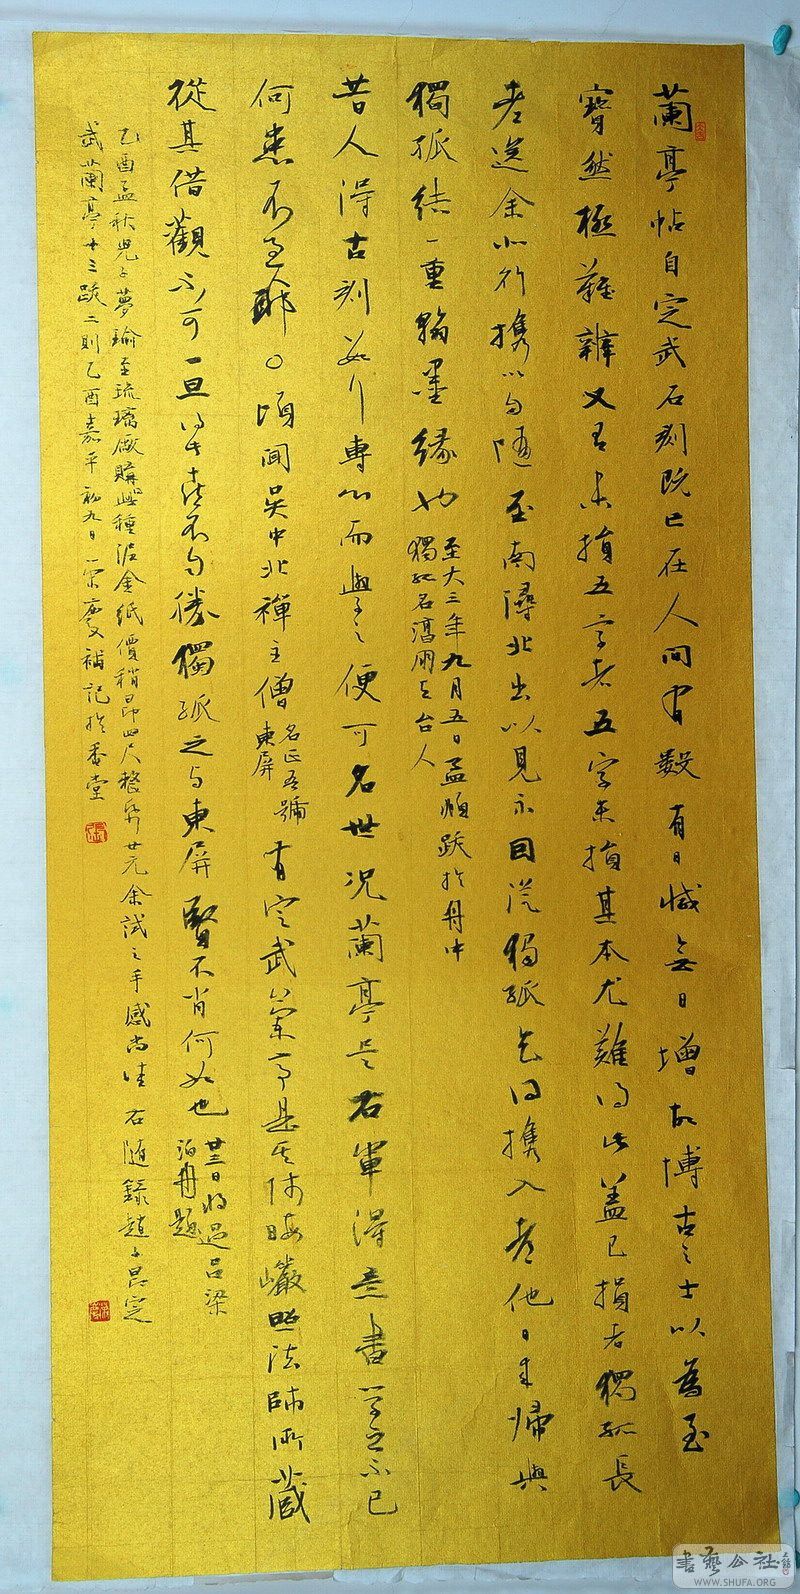 蘭亭帖自定武石刻既亡在人間者有數有日減無日增故博古之士以為至
寶然極難辨又有未損五字者五字未損其本尤難得此蓋已損者獨孤長
老送余北行攜以自隨至南潯北出以見示因從獨孤乞得攜入都他日來歸與
獨孤結一重翰墨緣也
至大三年九月五日孟頫跋於舟中
獨孤名淳朋天台人
昔人得古刻數行專心而學之便可名世況蘭亭是右軍得意書學之不已
何患不過人耶○頃聞吳中北禪主僧
名正吾號
東屏
有定武蘭亭是其師晦巖照法師所藏
從其借觀不可一旦得此喜不自勝獨孤之與東屏賢不肖何如也
廿三日將過呂梁
泊舟題
乙酉孟秋兒子夢瑜至琉璃廠購此種泥金紙價稍昂四尺整紙廿元余試之手感尚佳 右隨錄趙子昂定
武蘭亭十三跋二則乙酉嘉平初九日 慶補記於香堂
書藝公社
WWW.SHUFA.ORG